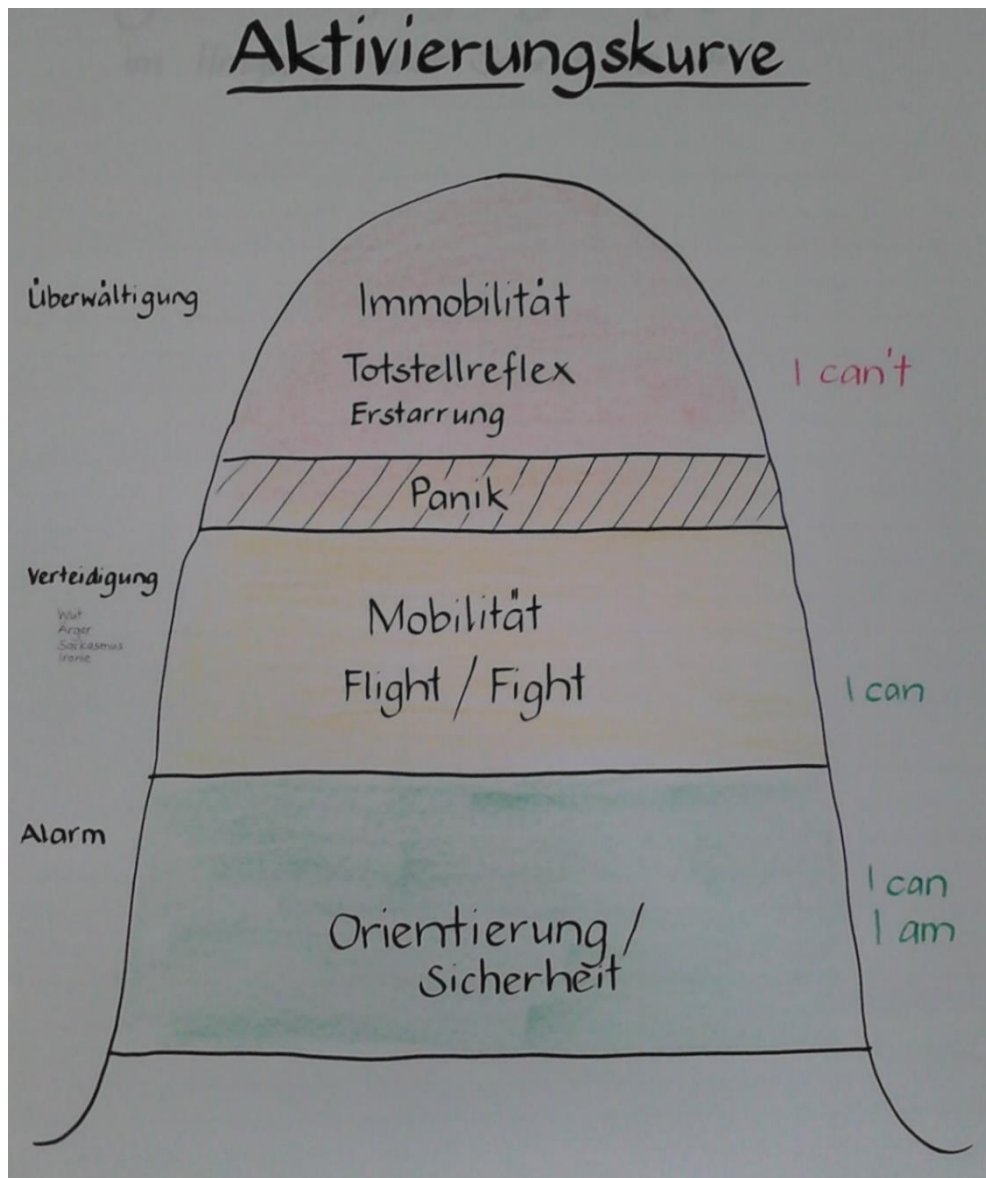 Aktivierungskurve
Überwältigung
Immobilität
Totstellreflex
Erstarrung
I can't
Panik
Verteidigung
Wut
Ärger
Sarkasmus
Ironie
Mobilität
Flight / Fight
I can
Alarm
I can
I am
Orientierung /
Sicherheit